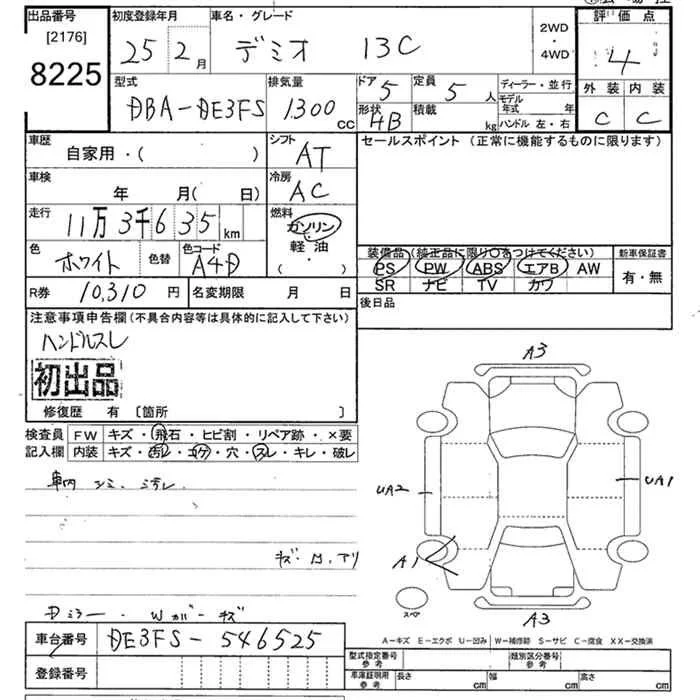 出品番号 初度登録年月 車名・グレード 評価点
[2176] 25年 2月 デミオ 13C 2WD・4WD 4
8225
型式 排気量 ドア 5 定員 5人 ディーラー・並行 外装 内装
DBA-DE3FS 1300cc 形状 HB 積載 kg モデル年式 年 C C
ハンドル 左・右
車歴 シフト セールスポイント (正常に機能するものに限ります)
自家用・( ) AT
車検 冷房
年 月( 日) AC
走行 燃料
11万3千635km ガソリン・軽油
( ・ )
色 色替 色コード 装備品(純正品に限り○をつけてください) 新車保証書
ホワイト A4D PS PW ABS エアB AW 有・無
SR ナビ TV カワ
R券 10,310円 名変期限 月 日 後日品
注意事項申告欄(不具合内容等は具体的に記入して下さい)
ハンドルスレ
初出品
修復歴 有 [箇所 ]
検査員 FW キズ・飛石・ヒビ割・リペア跡・×要
記入欄 内装 キズ・汚レ・コゲ・穴・スレ・キレ・破レ
A3
UA2 UA1
車内
A1
スペア
A3
Dミラー・Wカバーキズ
A-キズ E-エクボ U-凹み W-補修跡 S-サビ C-腐食 XX-交換済
車台番号 DE3FS-546525
型式指定番号 参考 類別区分番号 参考
登録番号
車庫証明用 参考 長さ cm 幅 cm 高さ cm